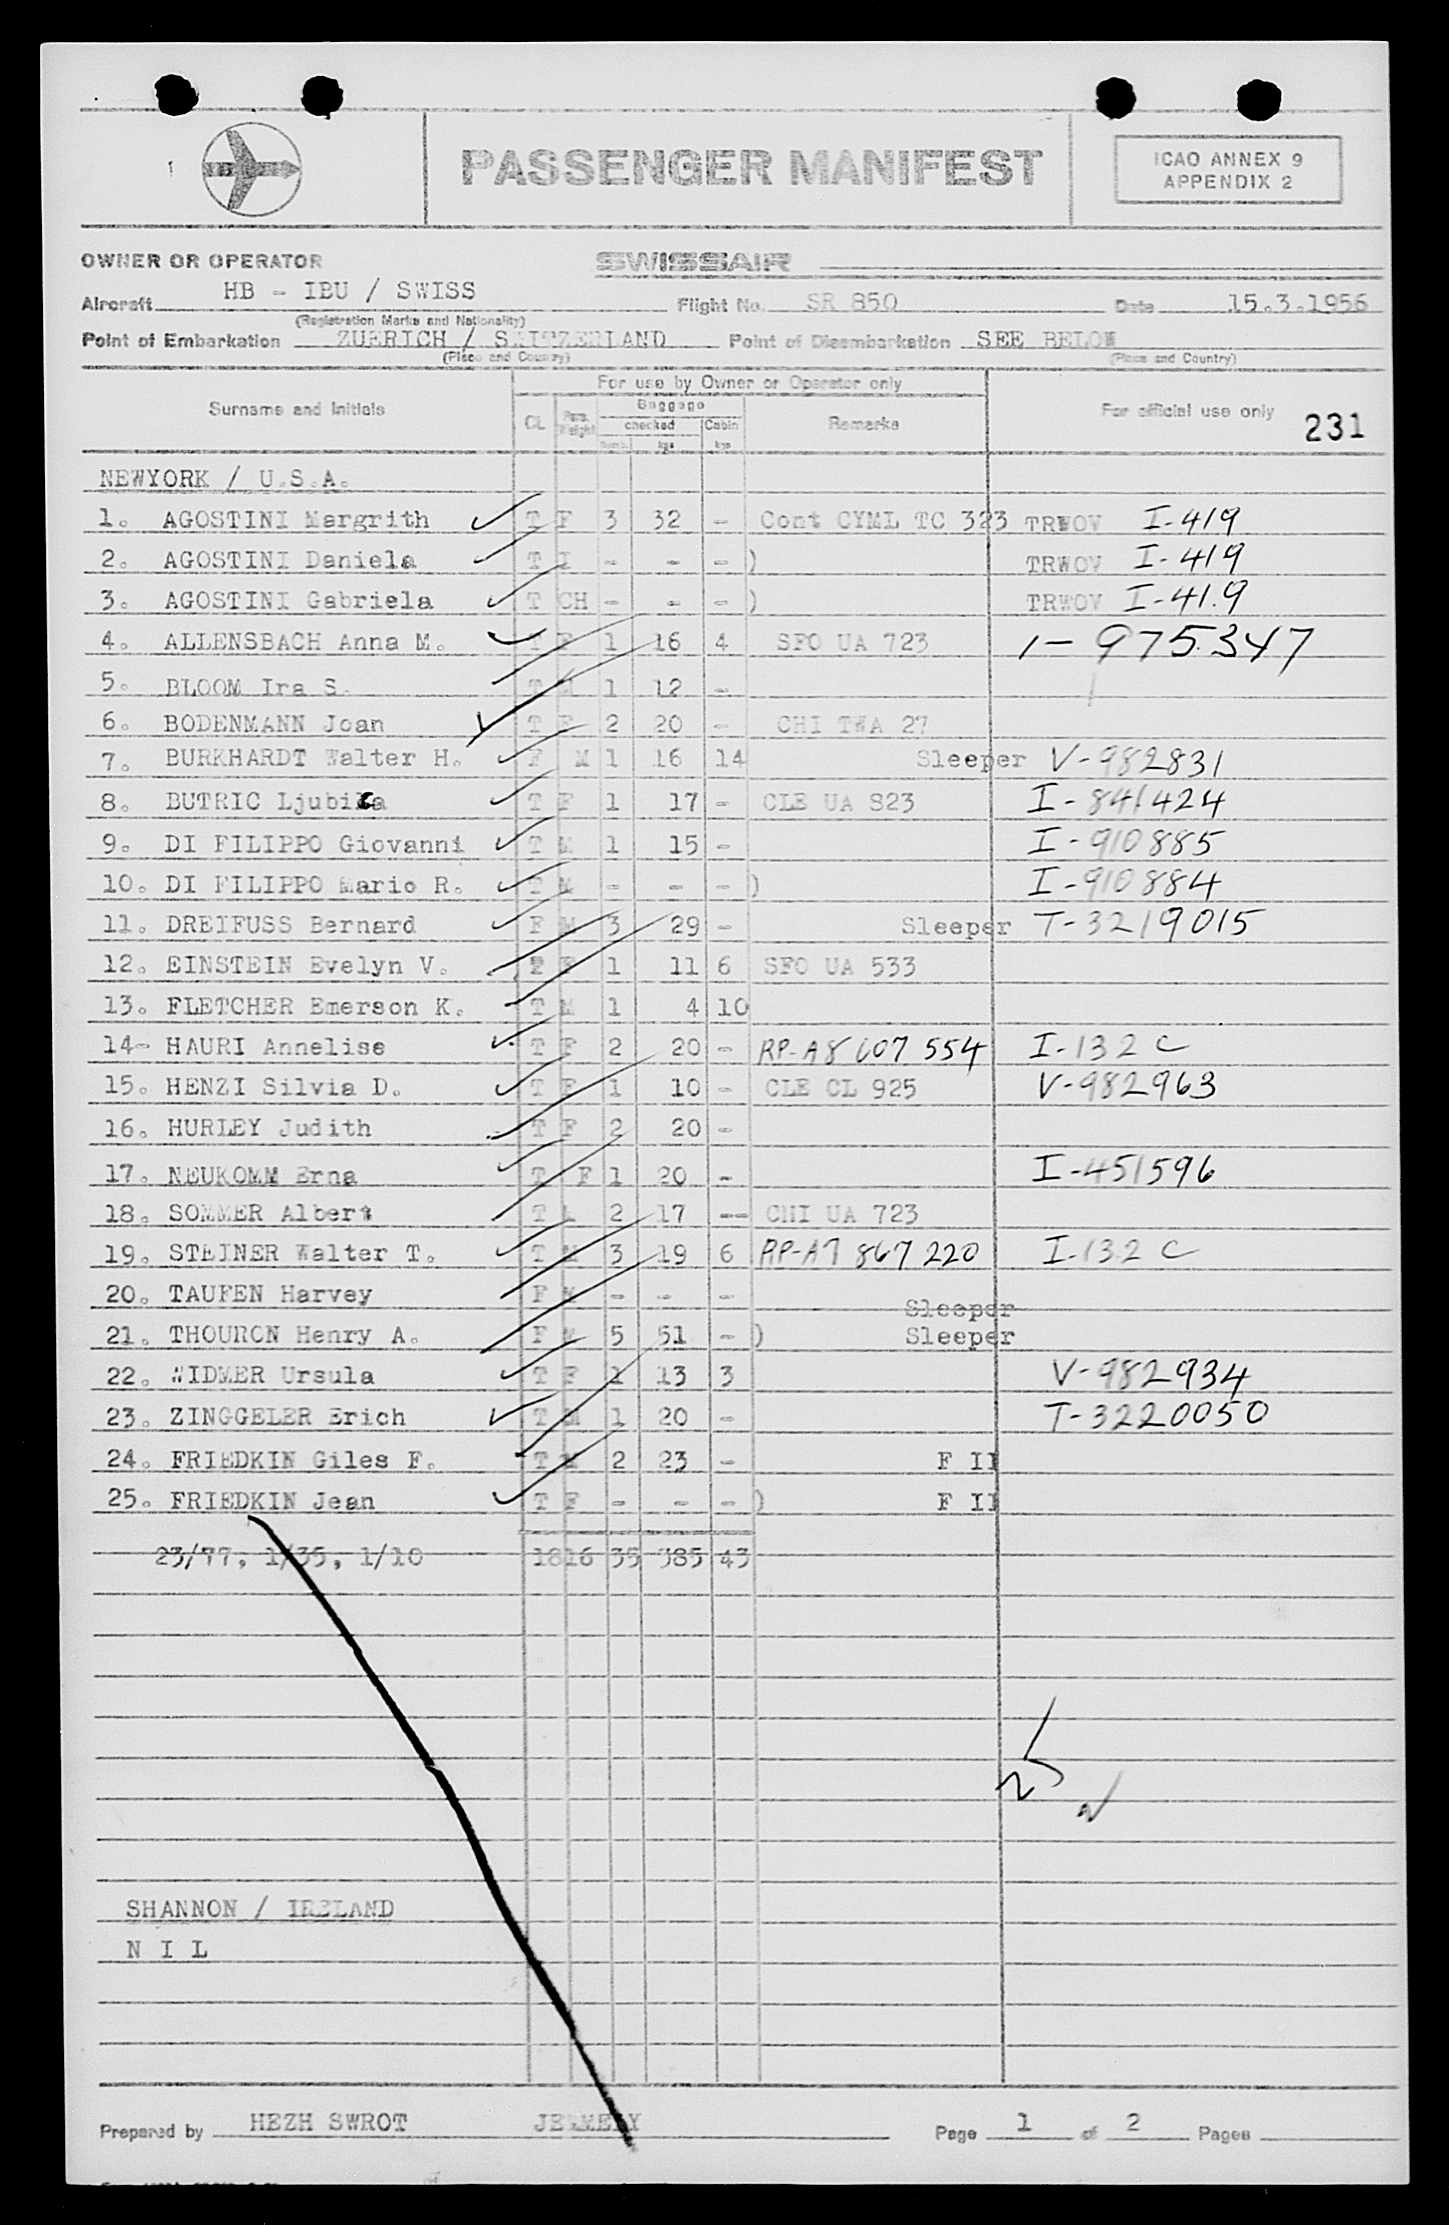 PASSENGER MANIFEST
ICAO ANNEX 9
APPENDIX 2
OWNER OR OPERATOR SWISSAIR
Aircraft HB - IBU / SWISS Flight No. SR 850 Date 15.3.1956
(Registration Marks and Nationality)
Point of Embarkation ZUERICH / SWITZERLAND Point of Disembarkation SEE BELOW
(Place and Country) (Place and Country)
For use by Owner or Operator only
Surname and Initials CL Pers. Weight Baggage checked Numb. kgs Cabin kgs Remarks For official use only 231
NEWYORK / U.S.A.
1. AGOSTINI Margrith T F 3 32 - Cont CYML TC 323 TRWOV I-419
2. AGOSTINI Daniela T I - - - ) TRWOV I-419
3. AGOSTINI Gabriela T CH - - - ) TRWOV I-41.9
4. ALLENSBACH Anna M. T F 1 16 4 SFO UA 723 1-975347
5. BLOOM Ira S. T M 1 12 -
6. BODENMANN Joan T F 2 20 - CHI TWA 27
7. BURKHARDT Walter H. F M 1 16 14 Sleeper V-982831
8. BUTRIC Ljubica T F 1 17 - CLE UA 823 I-841424
9. DI FILIPPO Giovanni T M 1 15 - I-910885
10. DI FILIPPO Mario R. T M - - - ) I-910884
11. DREIFUSS Bernard F M 3 29 - Sleeper T-3219015
12. EINSTEIN Evelyn V. T F 1 11 6 SFO UA 533
13. FLETCHER Emerson K. T M 1 4 10
14- HAURI Annelise T F 2 20 - RP-A8 607 554 I-132 C
15. HENZI Silvia D. T F 1 10 - CLE CL 925 V-982963
16. HURLEY Judith T F 2 20 -
17. NEUKOMM Erna T F 1 20 - I-451596
18. SOMMER Albert T 2 17 -- CHI UA 723
19. STEINER Walter T. T M 3 19 6 RP-A7 867 220 I-132 C
20. TAUFEN Harvey F M - - - Sleeper
21. THOURON Henry A. F M 5 51 - ) Sleeper
22. WIDMER Ursula T F 1 13 3 V-982934
23. ZINGGELER Erich T M 1 20 - T-3220050
24. FRIEDKIN Giles F. T M 2 23 - F II
25. FRIEDKIN Jean T F - - - ) F II
23/77, 1/35, 1/10 1816 35 385 43
25
SHANNON / IRELAND
N I L
Prepared by HEZH SWROT Page 1 of 2 Pages